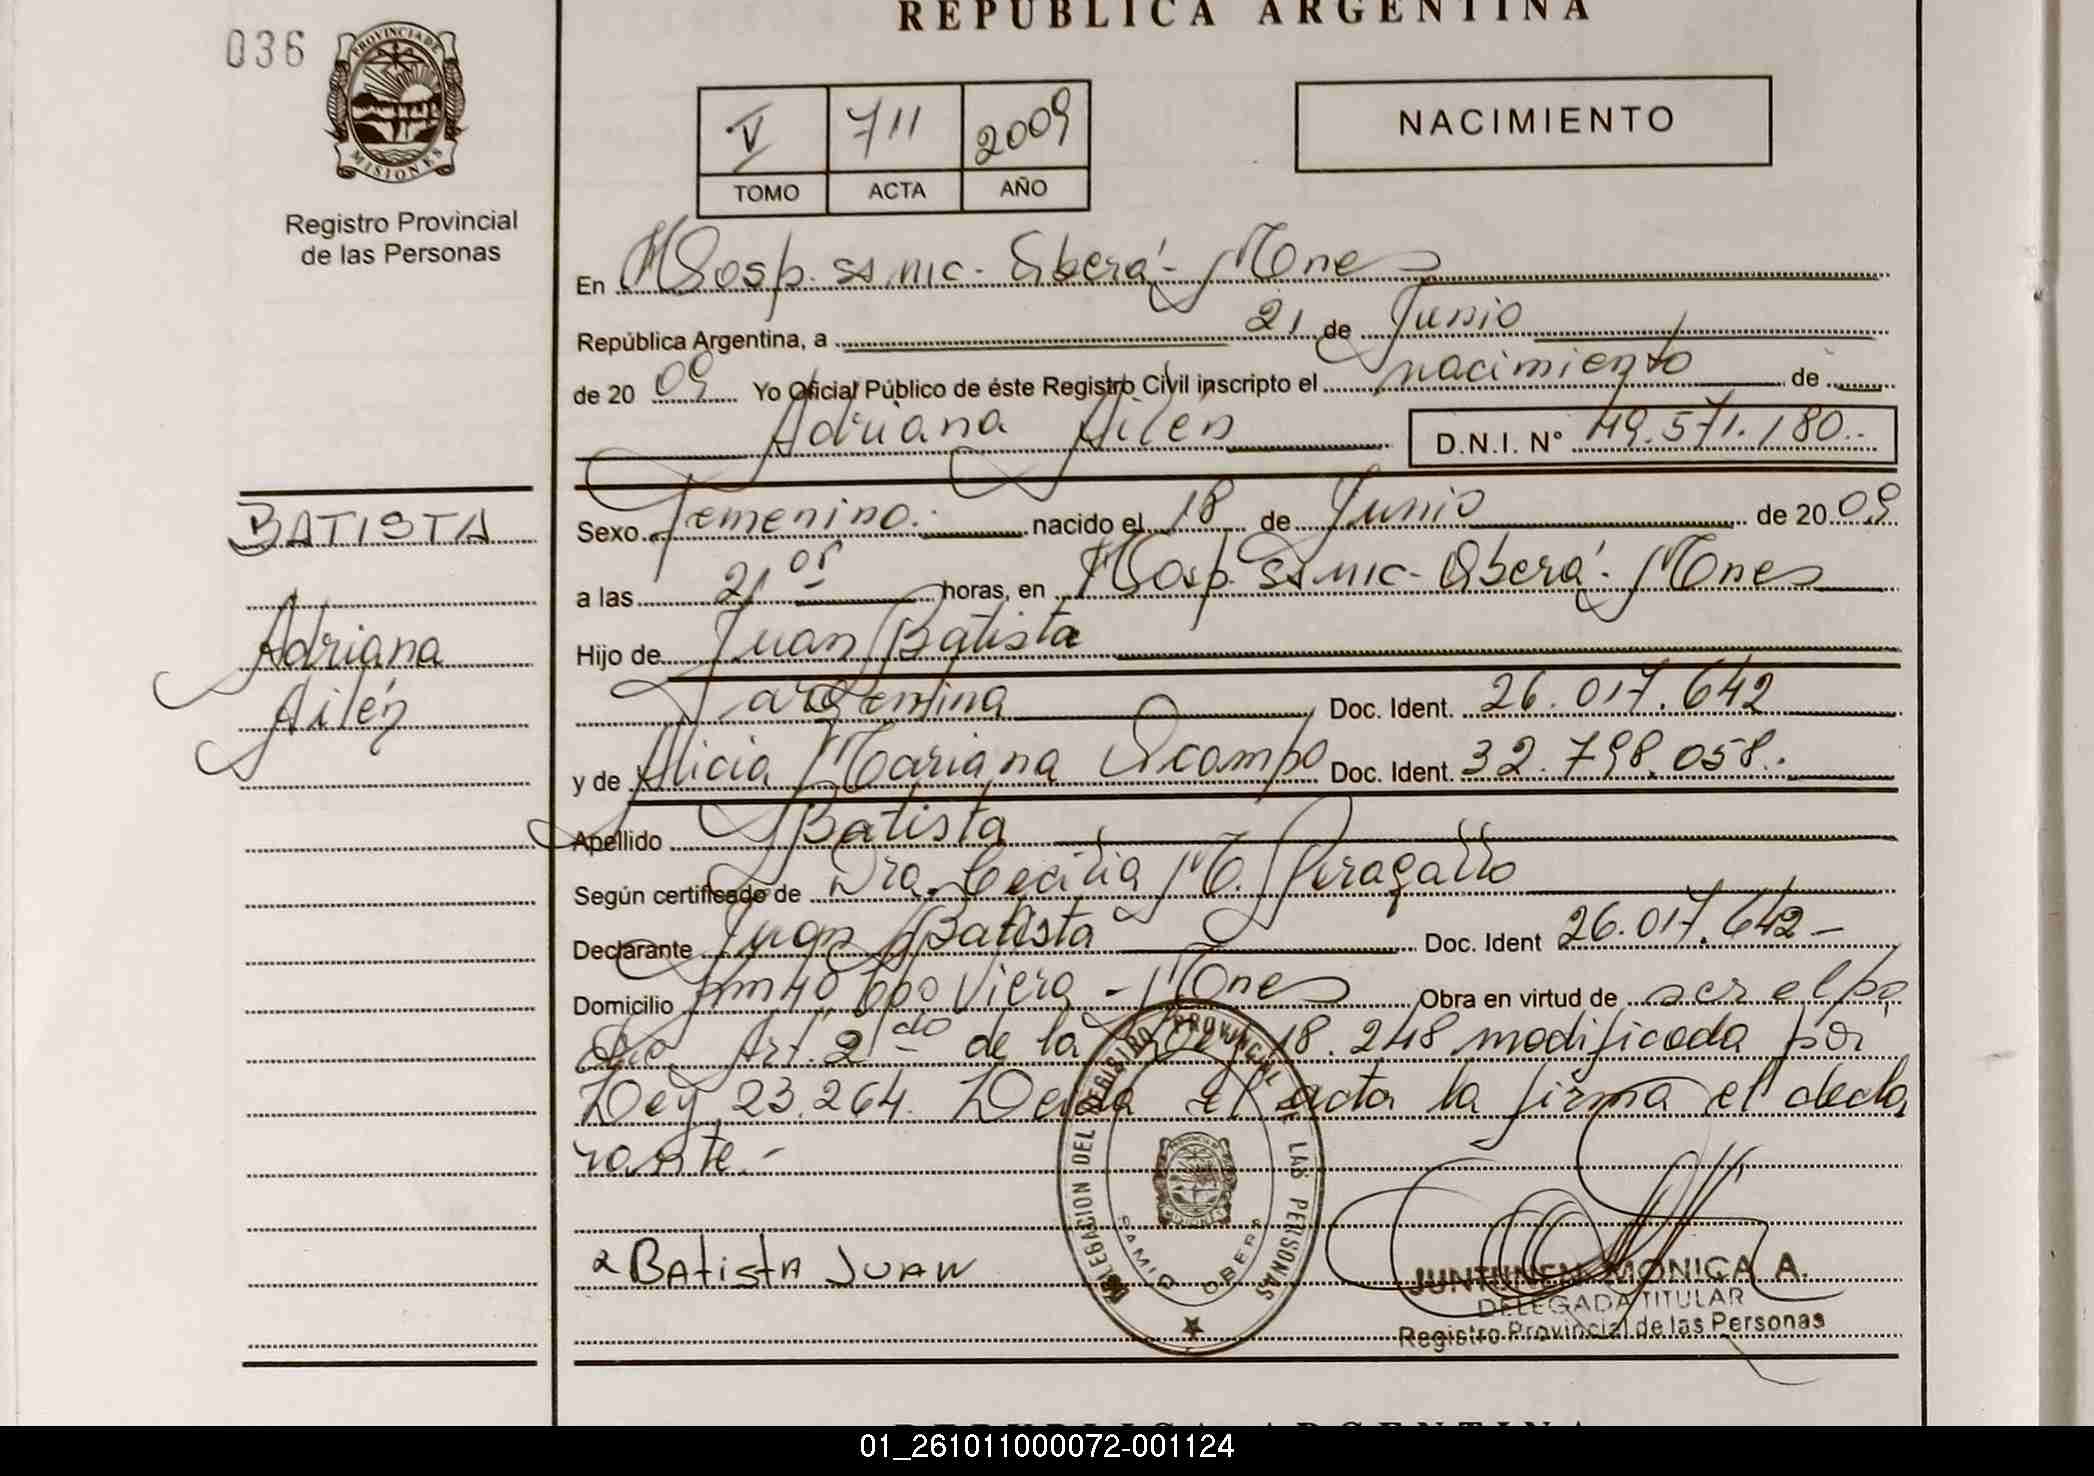 REPUBLICA ARGENTINA
036
PROVINCIA DE
MISIONES
Registro Provincial
de las Personas
V 711 2009
TOMO ACTA AÑO
NACIMIENTO
En Hosp. ss.mic - Oberá - Mones
República Argentina, a 21 de Junio
de 20 09 Yo Oficial Público de éste Registro Civil inscripto el nacimiento de
Adriana Ailén D.N.I. N° 49.571.180.-
BATISTA
Adriana
Ailén
Sexo Femenino.- nacido el 18 de Junio de 20 09
a las 21 05 horas, en Hosp. ss mic - Oberá - Mones
Hijo de Juan Batista
argentina Doc. Ident. 26.017.642
y de Alicia Mariana Ocampo Doc. Ident. 32.798.058.-
Apellido Batista
Según certificado de Dra. Cecilia M. Peragallo
Declarante Juan Batista Doc. Ident 26.017.642 -
Domicilio Km 40 Cpo Viera - Mones Obra en virtud de ser el pa
dre Art. 2do de la Ley 18.248 modificada por
Ley 23.264. Leída el acta la firma el decla
rante.-
Batista Juan
DELEGACION DEL REGISTRO PROVINCIAL DE LAS PERSONAS
SAMIC OBERA
JUNTUNEN MONICA A.
DELEGADA TITULAR
Registro Provincial de las Personas
REPUBLICA ARGENTINA
01_261011000072-001124